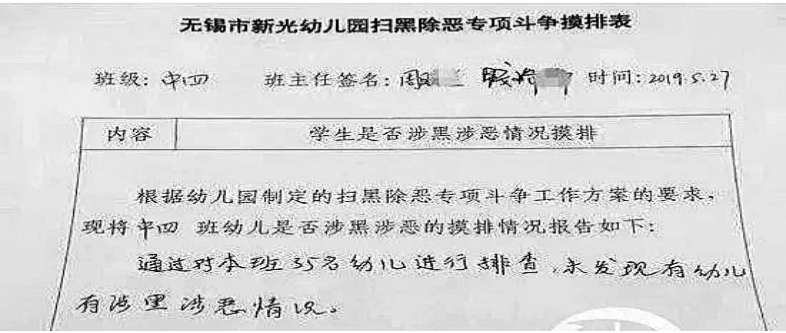 无锡市新光幼儿园扫黑除恶专项斗争摸排表
班级：中四 班主任签名：周 时间：2019.5.27
内容 学生是否涉黑涉恶情况摸排
根据幼儿园制定的扫黑除恶专项斗争工作方案的要求，
现将中四 班幼儿是否涉黑涉恶的摸排情况报告如下：
通过对本班35名幼儿进行排查，未发现有幼儿
有涉黑涉恶情况。